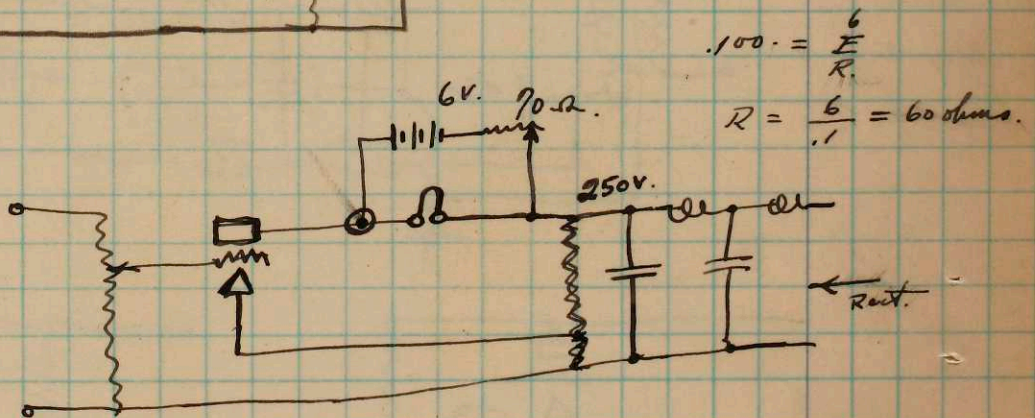 .100. = 6
E
R.
R = 6 / .1 = 60 ohms.
6v. 70 Ω.
250v.
Rect.